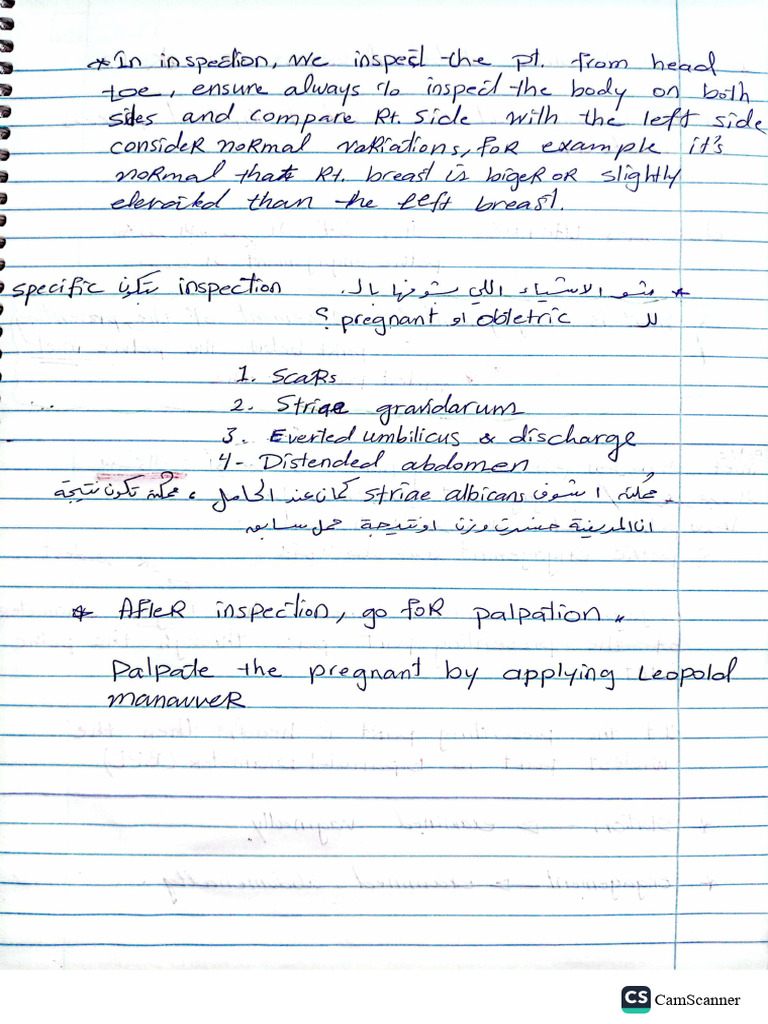 * In inspection, we inspect the pt. from head
toe, ensure always to inspect the body on both
sides and compare Rt. side with the left side
consider normal variations, for example it's
normal that Rt. breast is biger or slightly
elevated than the left breast.
* شو الاشياء اللي بشوفها بالـ inspection بتكون specific
للـ obstetric او pregnant ؟
1. Scars
2. Striae gravidarum
3. Everted umbilicus & discharge
4- Distended abdomen
- ممكن اشوف striae albicans كمان عند الحامل ، ممكن تكون نتيجة
ان المريضة خسرت وزن او نتيجة حمل سابق
* After inspection, go for palpation
Palpate the pregnant by applying Leopold
manauver
CS CamScanner